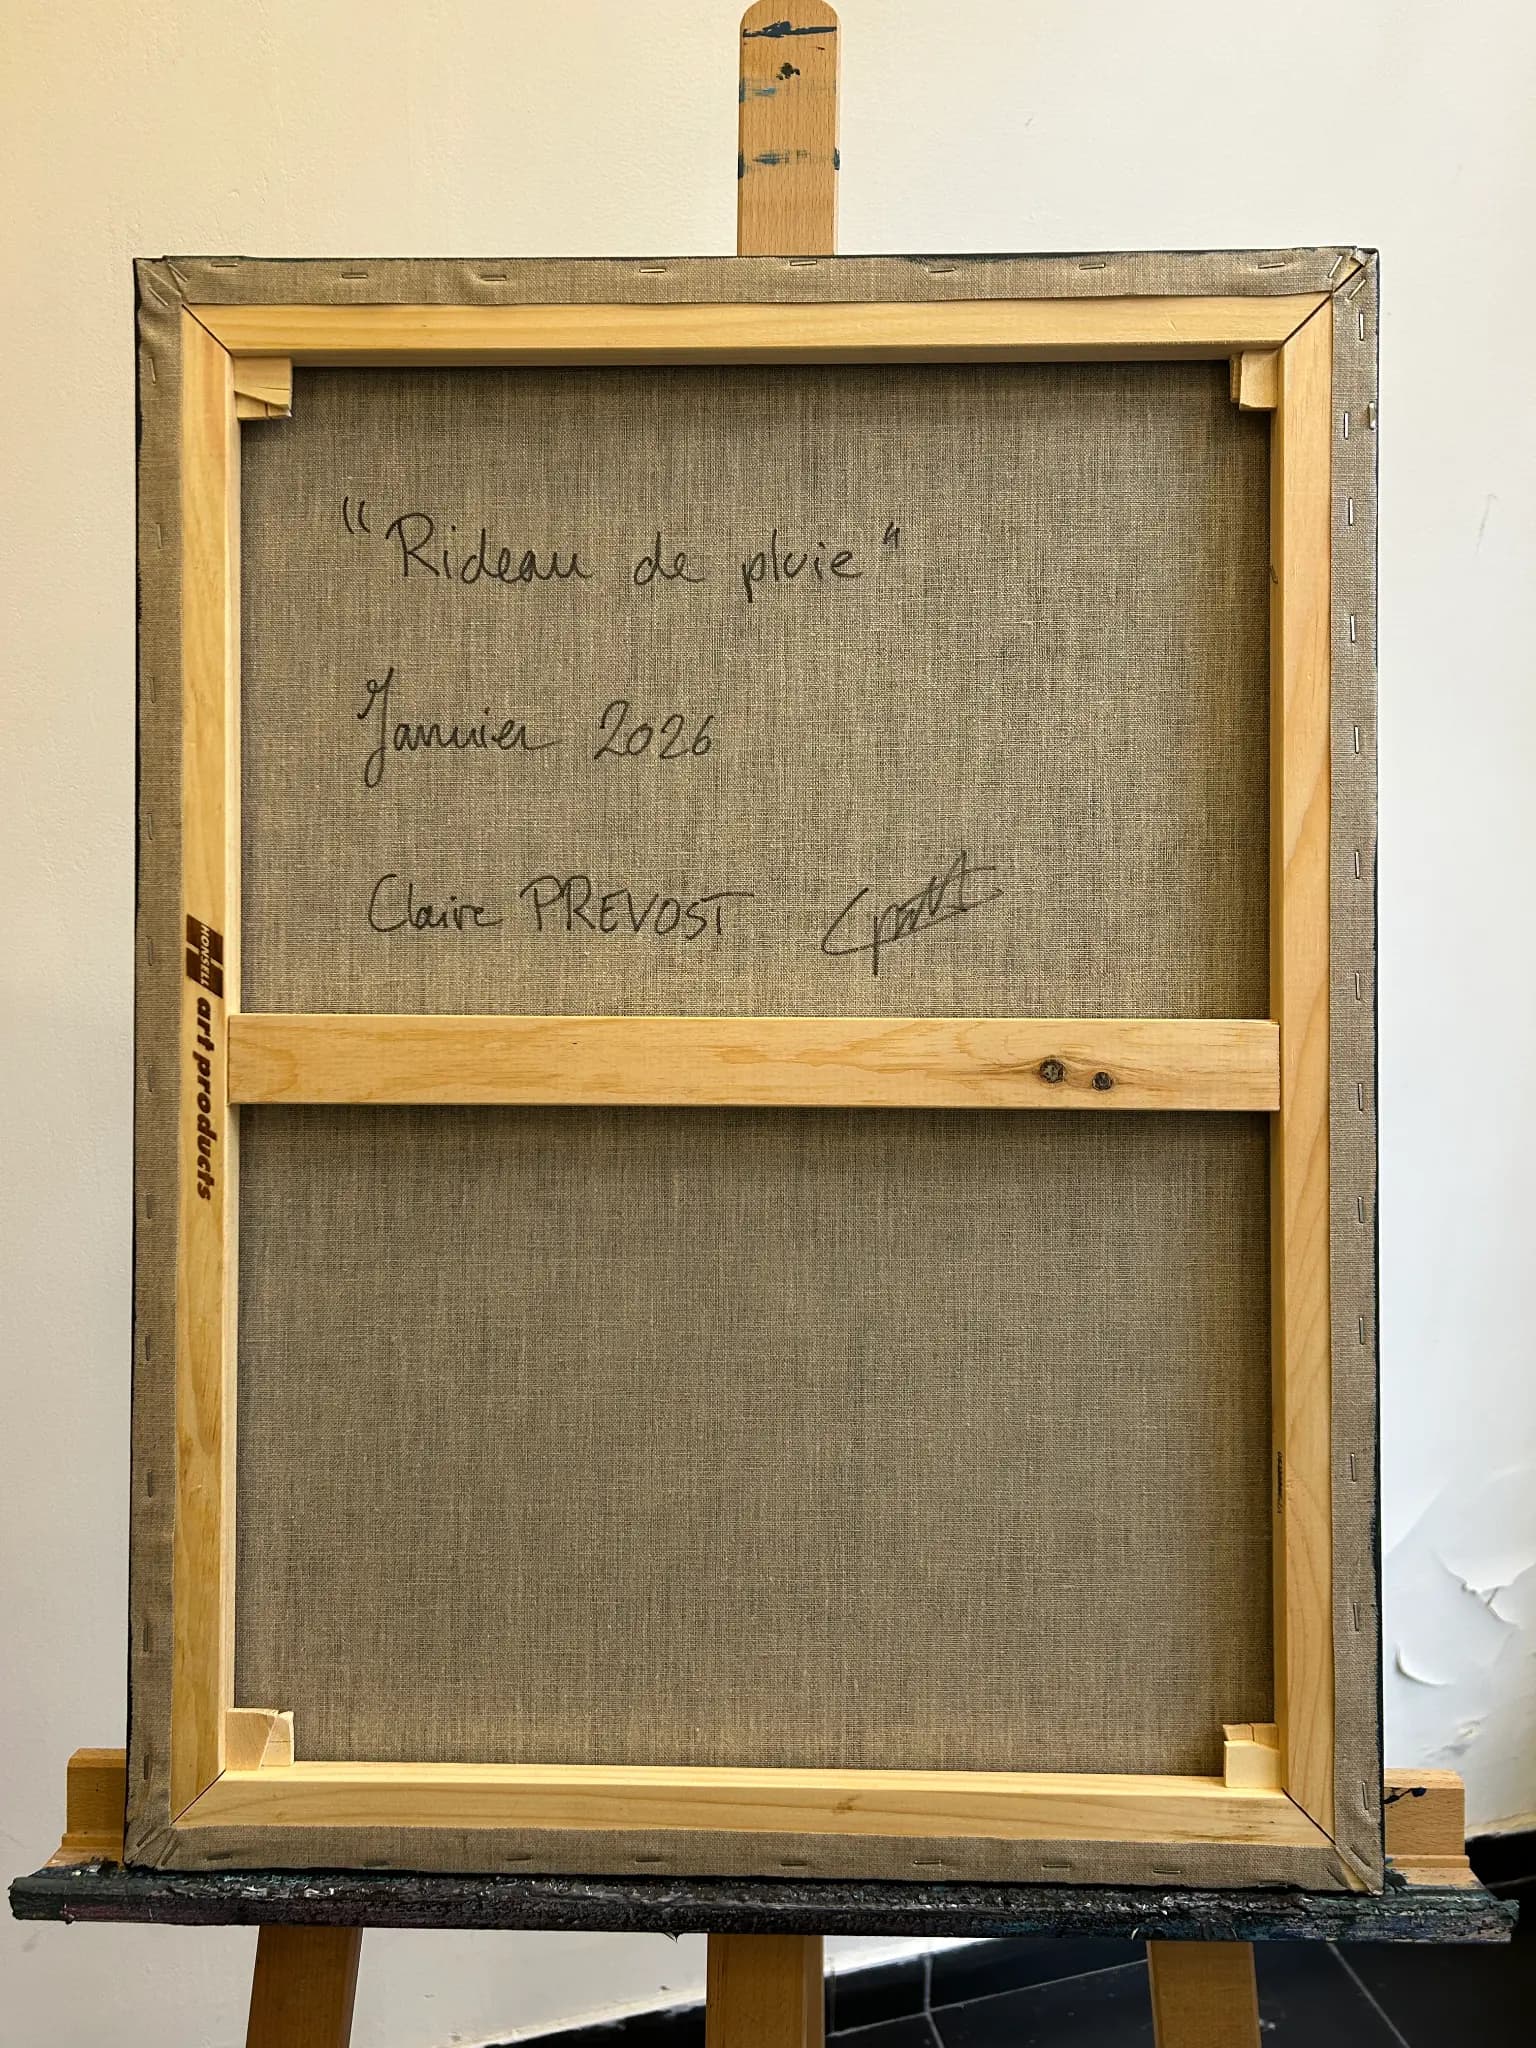 "Rideau de pluie"
Janvier 2026
Claire PREVOST
HONSELL
art products